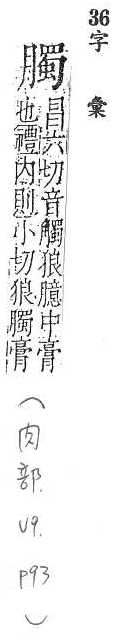 36字彙
臅
昌六切音觸狼臆中膏
也禮內則小切狼臅膏
(肉部. U9. P93)